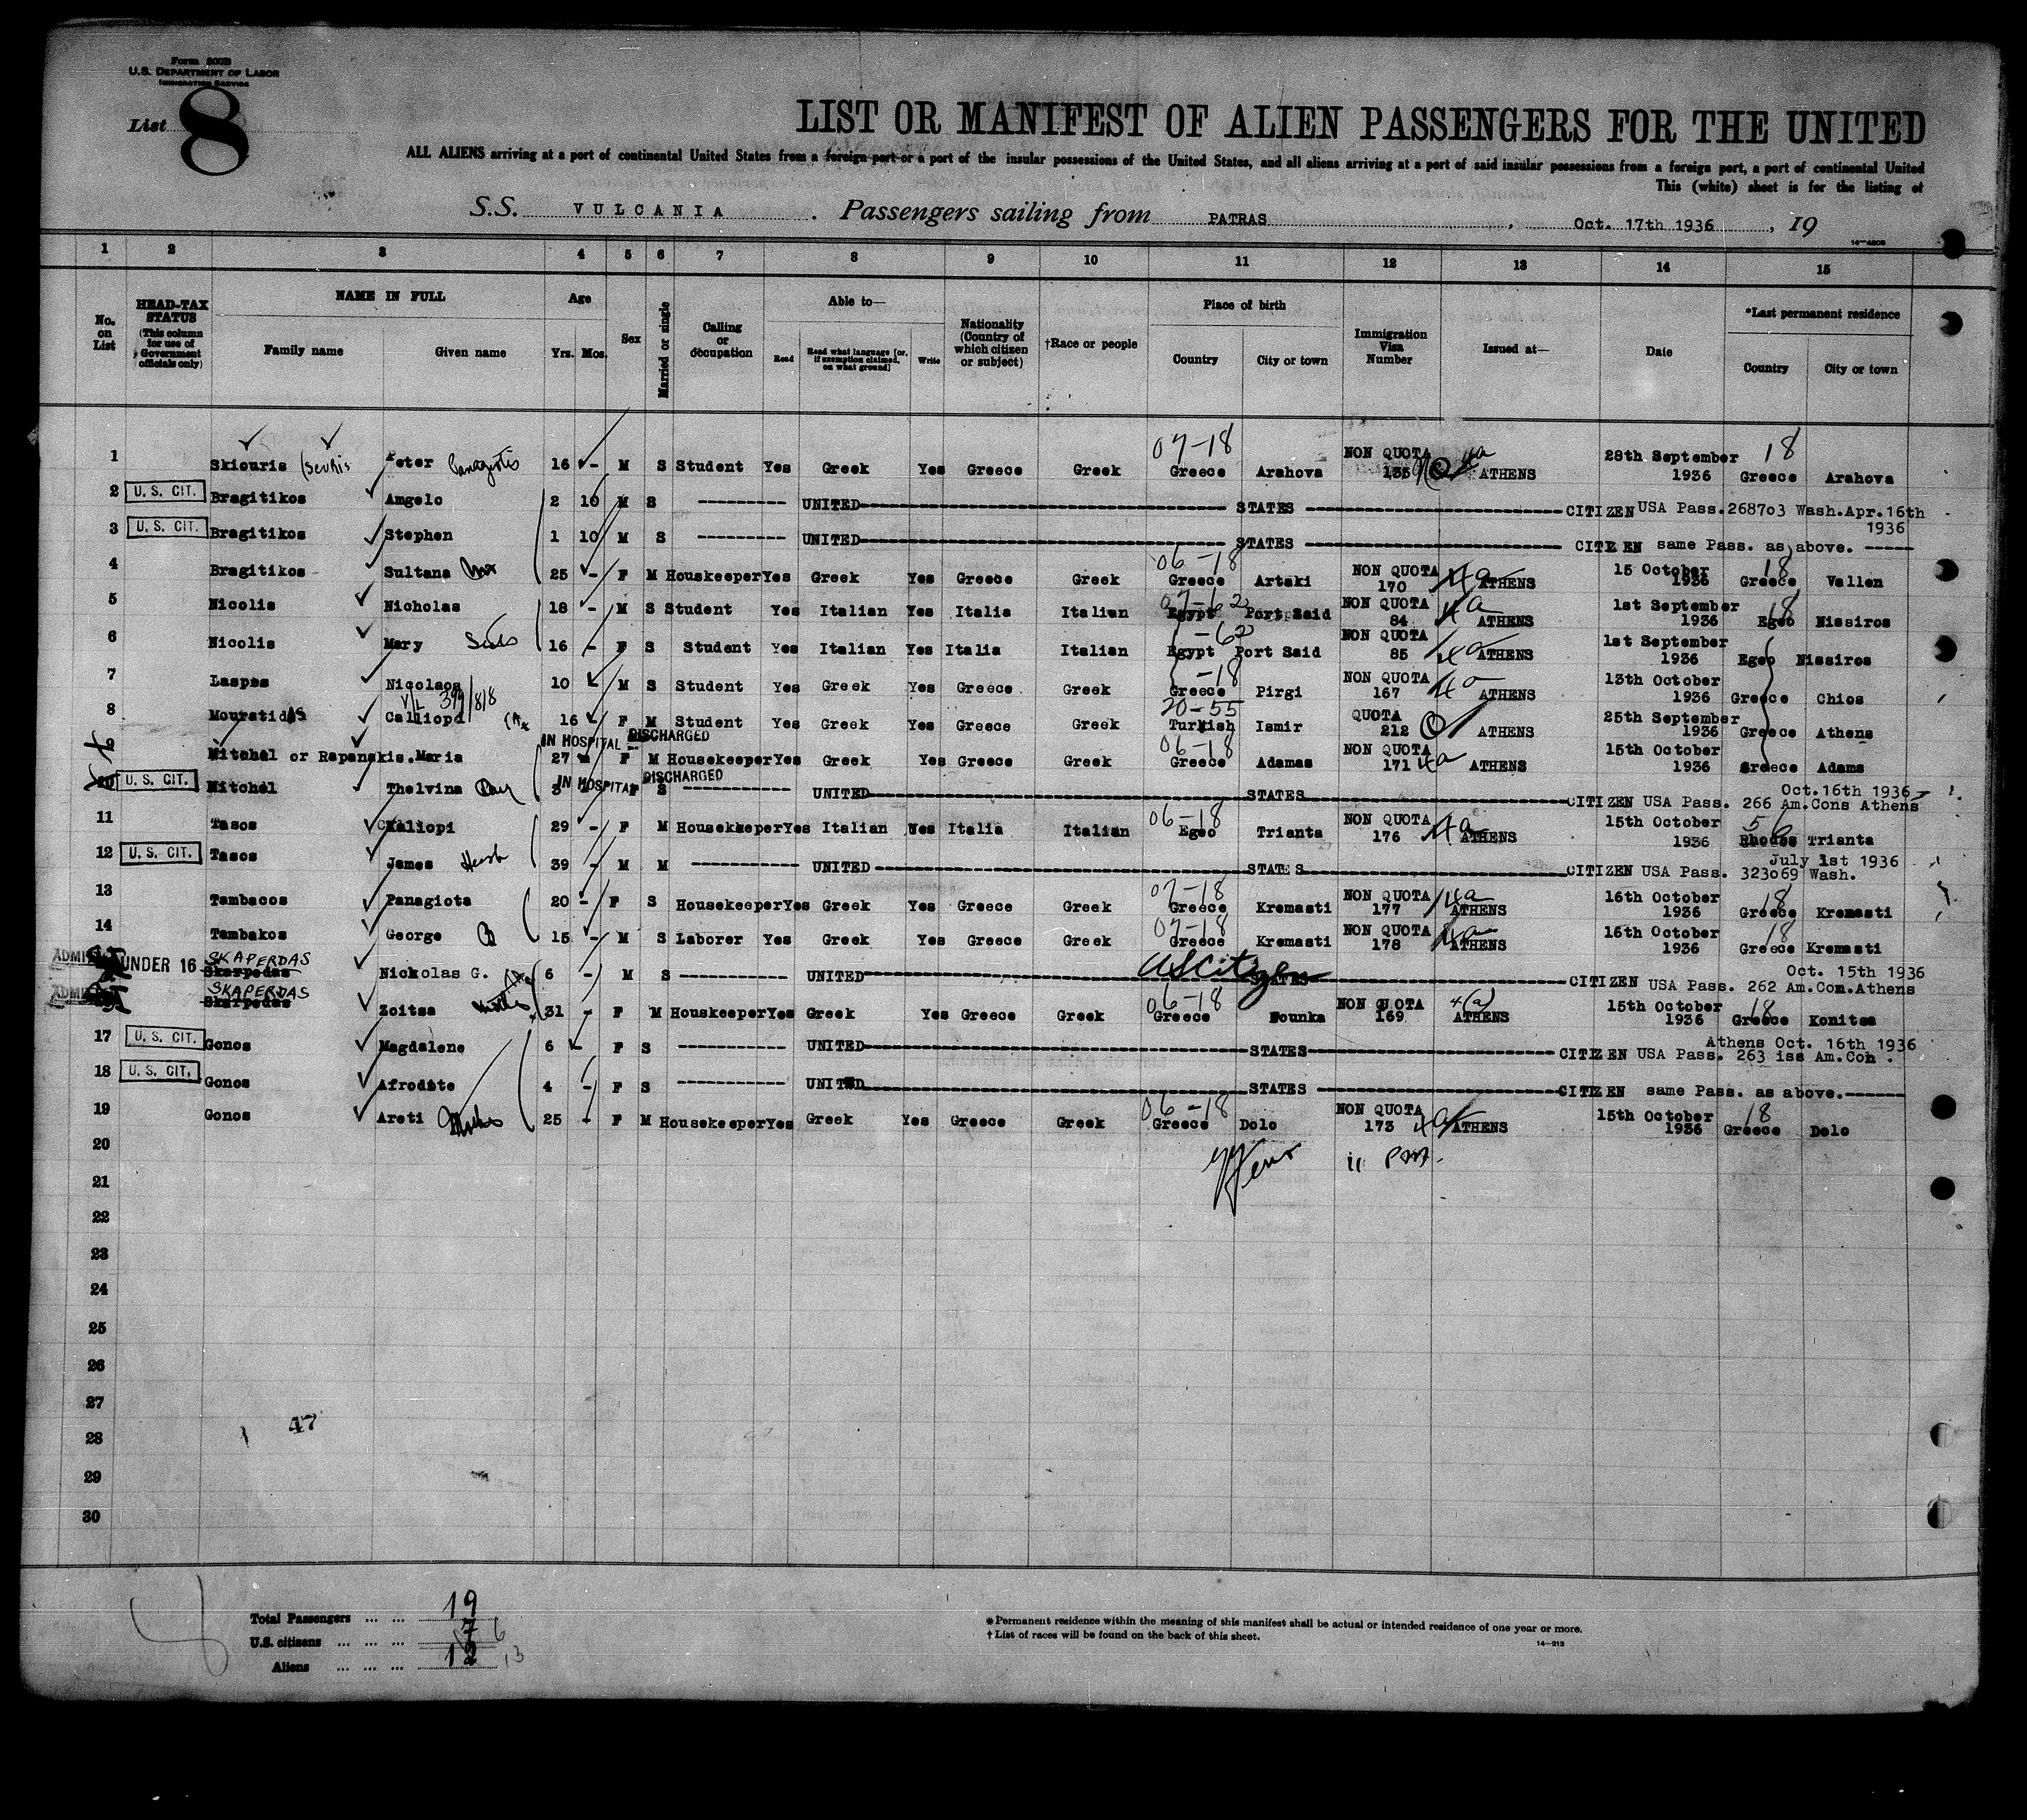 Form 500B
U.S. DEPARTMENT OF LABOR
IMMIGRATION SERVICE
List 8
LIST OR MANIFEST OF ALIEN PASSENGERS FOR THE UNITED
ALL ALIENS arriving at a port of continental United States from a foreign port or a port of the insular possessions of the United States, and all aliens arriving at a port of said insular possessions from a foreign port, a port of continental United
This (white) sheet is for the listing of
S.S. VULCANIA . Passengers sailing from PATRAS , Oct. 17th 1936 , 19
14-4808
1 2 3 4 5 6 7 8 9 10 11 12 13 14 15
No. on List
HEAD-TAX STATUS (This column for use of Government officials only)
NAME IN FULL
Family name Given name
Age
Yrs. Mos.
Sex
Married or single
Calling or occupation
Able to—
Read Read what language [or, if exemption claimed, on what ground] Write
Nationality (Country of which citizen or subject)
†Race or people
Place of birth
Country City or town
Immigration Visa Number
Issued at—
Date
*Last permanent residence
Country City or town
07-18 18
1 Skiouris Peter Panagiotis 16 - M S Student Yes Greek Yes Greece Greek Greece Arahova NON QUOTA 135 4a ATHENS 28th September 1936 Greece Arahova
2 U. S. CIT. Bragitikos Amgelo 2 10 M S ---------- UNITED STATES CITIZEN USA Pass. 268703 Wash. Apr. 16th 1936
3 U. S. CIT. Bragitikos Stephen 1 10 M S ---------- UNITED STATES CITIZEN same Pass. as above. -----
06-18 18
4 Bragitikos Sultana 25 - F M Houskeeper Yes Greek Yes Greece Greek Greece Artaki NON QUOTA 170 4a ATHENS 15 October 1936 Greece Vallen
07-62 18
5 Nicolis Nicholas 18 - M S Student Yes Italian Yes Italia Italian Egypt Port Said NON QUOTA 84 4a ATHENS 1st September 1936 Egeo Nissiros
-62
6 Nicolis Mary 16 - F S Student Yes Italian Yes Italia Italian Egypt Port Said NON QUOTA 85 4a ATHENS 1st September 1936 Egeo Nissiros
-18
7 Laspes Nicolaos 10 - M S Student Yes Greek Yes Greece Greek Greece Pirgi NON QUOTA 167 4a ATHENS 13th October 1936 Greece Chios
V/L 399/818 20-55
8 Mouratidas Calliopi 16 - F M Student Yes Greek Yes Greece Greek Turkish Ismir QUOTA 212 ATHENS 25th September 1936 Greece Athens
IN HOSPITAL DISCHARGED 06-18
9 Mitchel or Rapanakis. Maria 27 F M Housekeeper Yes Greek Yes Greece Greek Greece Adamas NON QUOTA 171 4a ATHENS 15th October 1936 Greece Adams
IN HOSPITAL DISCHARGED
10 U. S. CIT. Mitchel Thelvina F S ---------- UNITED STATES CITIZEN USA Pass. 266 Am.Cons Athens Oct.16th 1936
06-18 56
11 Tasos Caliopi 29 - F M Housekeeper Yes Italian Yes Italia Italian Egeo Trianta NON QUOTA 176 4a ATHENS 15th October 1936 Rhodes Trianta
12 U. S. CIT. Tasos James 39 - M M ---------- UNITED STATES CITIZEN USA Pass. 323069 Wash. July 1st 1936
07-18 18
13 Tambacos Panagiota 20 - F S Housekeeper Yes Greek Yes Greece Greek Greece Kremasti NON QUOTA 177 4a ATHENS 16th October 1936 Greece Kremasti
07-18 18
14 Tambakos George 15 - M S Laborer Yes Greek Yes Greece Greek Greece Kremasti NON QUOTA 178 4a ATHENS 16th October 1936 Greece Kremasti
UNDER 16 SKAPERDAS Skarpedas Nickolas G. 6 - M S ---------- UNITED STATES US Citizen CITIZEN USA Pass. 262 Am.Con.Athens Oct. 15th 1936
SKAPERDAS 06-18 18
Skarpedas Zoitsa 31 - F M Houskeeper Yes Greek Yes Greece Greek Greece Founka NON QUOTA 169 4(a) ATHENS 15th October 1936 Greece Konitsa
17 U. S. CIT. Gonos Magdalene 6 - F S ---------- UNITED STATES CITIZEN USA Pass. 263 iss Am.Con . Athens Oct. 16th 1936
18 U. S. CIT. Gonos Afrodite 4 - F S ---------- UNITED STATES CITIZEN same Pass. as above.------
06-18 18
19 Gonos Areti 25 - F M Housekeeper Yes Greek Yes Greece Greek Greece Dolo NON QUOTA 173 4a ATHENS 15th October 1936 Greece Dolo
20
21
22
23
24
25
26
27
28
29
30
47
Total Passengers ... ... 19
U.S. citizens ... ... ... 7 6
Aliens ... ... ... 12 13
* Permanent residence within the meaning of this manifest shall be actual or intended residence of one year or more.
† List of races will be found on the back of this sheet.
14-213